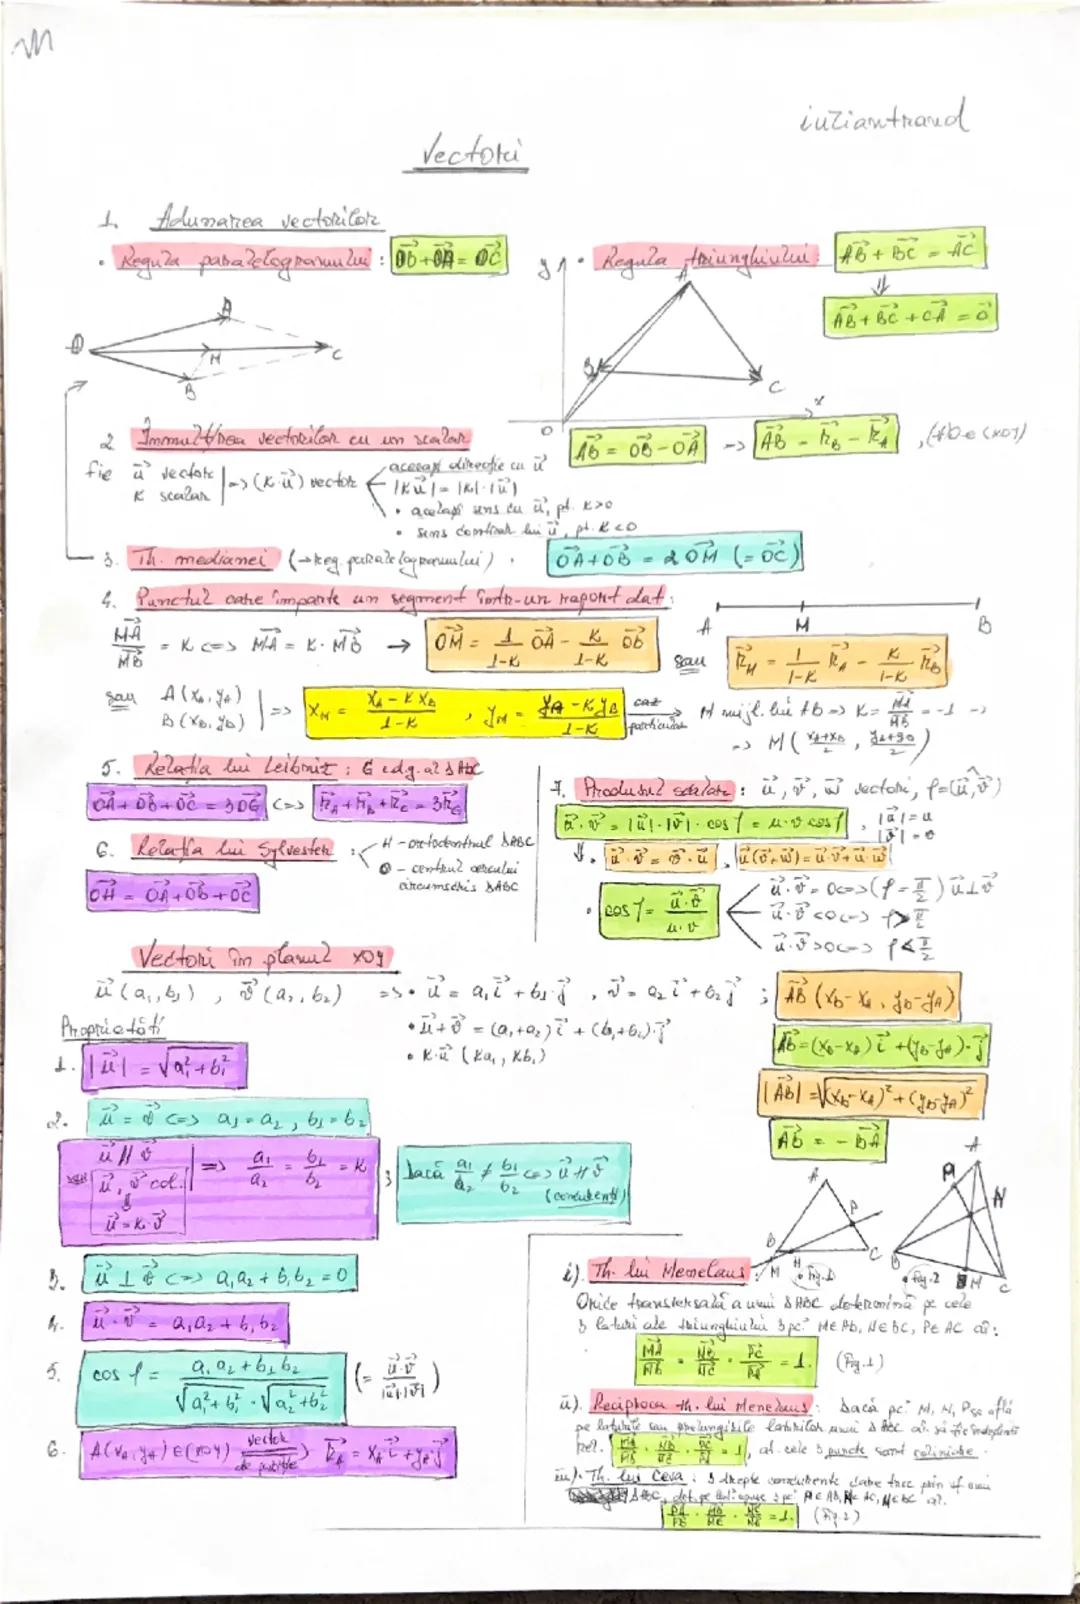 iuliantraud
Vectori
1. Adunarea vectorilor
• Regula paralelogramului : OB + OA = OC
• Regula triunghiului : AB + BC = AC
⇓
AB + BC + CA = 0
O A M B C
y A B C x O
AB = OB - OA => AB = r_B - r_A , (∀) O ∈ (xOy)
2 Înmulțirea vectorilor cu un scalar
fie u vector
k scalar => (k·u) vector
aceeași direcție cu u
|ku| = |k|·|u|
• același sens cu u, pt. k>0
• sens contrar lui u, pt. k<0
3. Th. medianei (→ reg. paralelogramului) . OA + OB = 2 OM (= OC)
4. Punctul care împarte un segment într-un raport dat :
A M B
MA/MB = k <=> MA = k · MB → OM = 1/(1-k) OA - k/(1-k) OB
sau r_M = 1/(1-k) r_A - k/(1-k) r_B
sau A(x_A, y_A)
B(x_B, y_B) => x_M = (x_A - k x_B)/(1-k) , y_M = (y_A - k y_B)/(1-k)
caz particular → M mijl. lui AB => k = MA/MB = -1 =>
=> M((x_A+x_B)/2, (y_A+y_B)/2)
5. Relația lui Leibniz : G c.d.g. al ΔABC
OA + OB + OC = 3OG <=> r_A + r_B + r_C = 3r_G
6. Relația lui Sylvester :
H - ortocentrul ΔABC
O - centrul cercului circumscris ΔABC
OH = OA + OB + OC
7. Produsul scalar : u, v, w vectori, φ=(u,v)
u·v = |u|·|v|·cos φ = u·v cos φ , |u| = u
|v| = v
⇓ . u·v = v·u , u(v+w) = u·v + u·w
• cos φ = u·v / u·v
u·v = 0 <=> (φ = π/2) u⊥v
u·v < 0 <=> φ > π/2
u·v > 0 <=> φ < π/2
Vectori în planul xOy
u(a₁,b₁) , v(a₂,b₂) => • u = a₁i + b₁j , v = a₂i + b₂j ;
• u+v = (a₁+a₂)i + (b₁+b₂)·j
• k·u (ka₁, kb₁)
AB (x_B-x_A, y_B-y_A)
AB = (x_B-x_A)i + (y_B-y_A)·j
|AB| = √((x_B-x_A)² + (y_B-y_A)²)
AB = - BA
Proprietăți
1. |u| = √(a₁²+b₁²)
2. u = v <=> a₁ = a₂ , b₁ = b₂
u ∥ v
sau u, v col.
⇕
u = k·v
=> a₁/a₂ = b₁/b₂ = k ;
Dacă a₁/a₂ ≠ b₁/b₂ <=> u ∦ v
(concurenți)
3. u ⊥ v <=> a₁a₂ + b₁b₂ = 0
4. u·v = a₁a₂ + b₁b₂
5. cos φ = (a₁a₂ + b₁b₂)/(√(a₁²+b₁²)·√(a₂²+b₂²)) (= u·v/|u|·|v|)
6. A(x_A, y_A) ∈ (xOy) vector de poziție r_A = x_A i + y_A j
A P B C M N • Fig.1
A M N B C • fig.2
i). Th. lui Menelaus :
Orice transversală a unui ΔABC determină pe cele
3 laturi ale triunghiului 3 pc. M∈AB, N∈BC, P∈AC aî:
MA/MB · NB/NC · PC/PA = 1. (Fig.1)
ii). Reciproca th. lui Menelaus : Dacă pc. M, N, P se află
pe laturile sau prelungirile laturilor unui ΔABC aî. să fie îndeplinită
rel. MA/MB · NB/NC · PC/PA = 1, at. cele 3 puncte sunt coliniare.
iii). Th. lui Ceva : 3 drepte concurente care trec prin vf. unui
ΔABC, det. pe
(Fig.2)